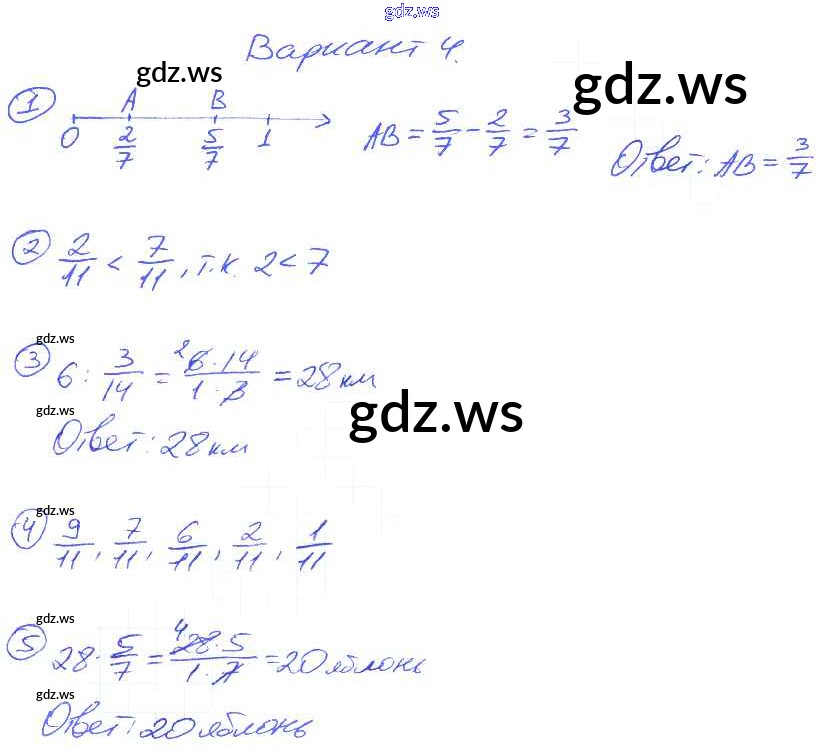 gdz.ws
Вариант 4.
gdz.ws
gdz.ws
1 A B
0 2/7 5/7 1
AB = 5/7 - 2/7 = 3/7
Ответ: AB = 3/7
2 2/11 < 7/11, т.к. 2 < 7
gdz.ws
3 6 : 3/14 = 2 6·14/1·3 = 28 км
gdz.ws
gdz.ws
Ответ: 28 км
gdz.ws
4 9/11, 7/11, 6/11, 2/11, 1/11
gdz.ws
5 28 · 5/7 = 4 28·5/1·7 = 20 яблонь
gdz.ws
Ответ: 20 яблонь